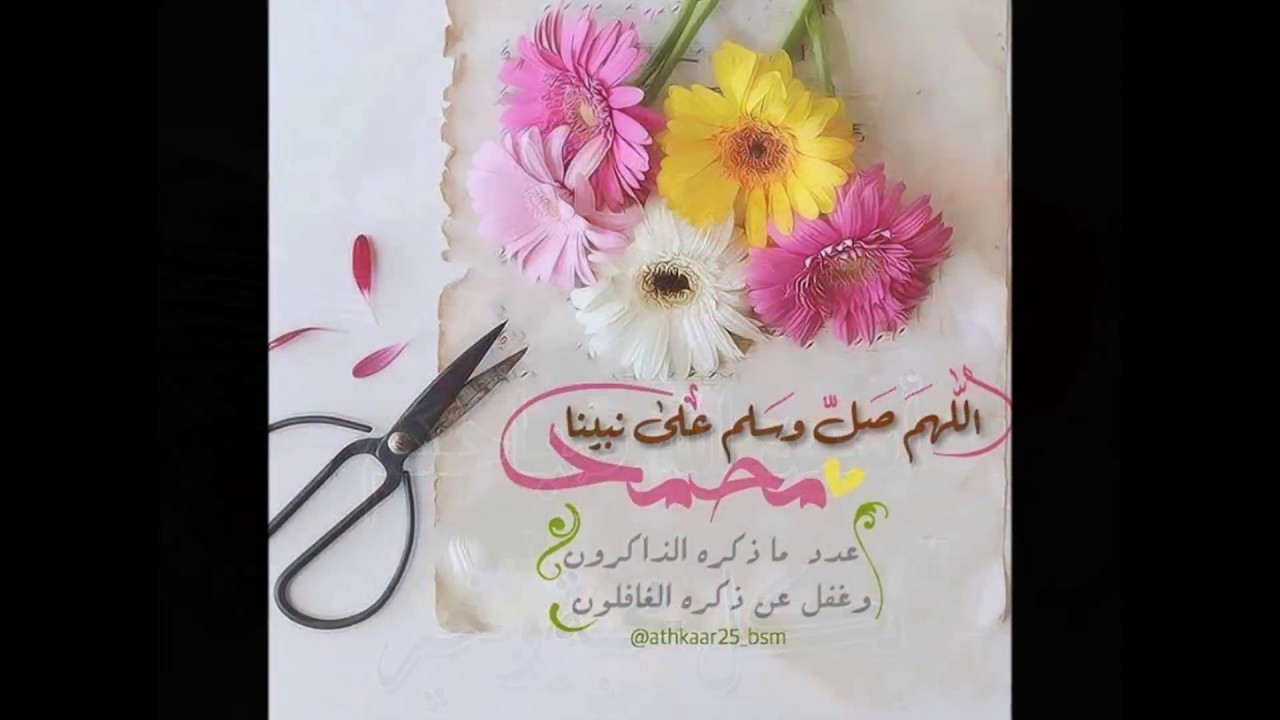 اللهم صَلّ وسَلم علىٰ نبينا
محمد
عدد ما ذكره الذاكرون
وغفل عن ذكره الغافلون
@athkaar25_bsm